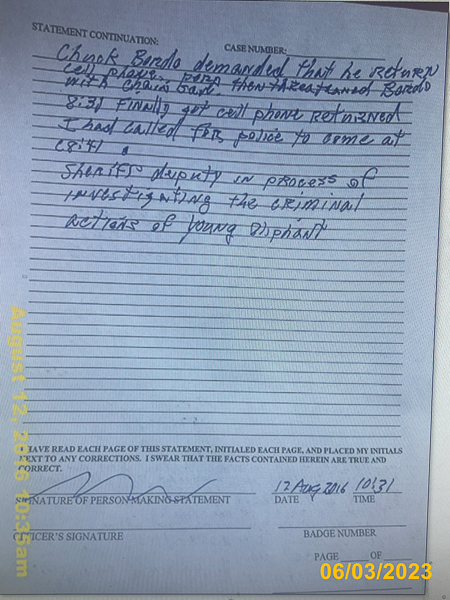 STATEMENT CONTINUATION:
CASE NUMBER:
Chuck Bordo demanded that he return
cell phone. then threatened Bordo
with chain saw.
8:30 Finally got cell phone returned
I had called for police to come at
8:41
Sheriff's deputy in process of
investigating the criminal
actions of young Oliphant
HAVE READ EACH PAGE OF THIS STATEMENT, INITIALED EACH PAGE, AND PLACED MY INITIALS
NEXT TO ANY CORRECTIONS. I SWEAR THAT THE FACTS CONTAINED HEREIN ARE TRUE AND
CORRECT.
12 Aug 2016 10:31
SIGNATURE OF PERSON MAKING STATEMENT
DATE
TIME
OFFICER'S SIGNATURE
BADGE NUMBER
PAGE OF
August 12, 2016 10:35am
06/03/2023